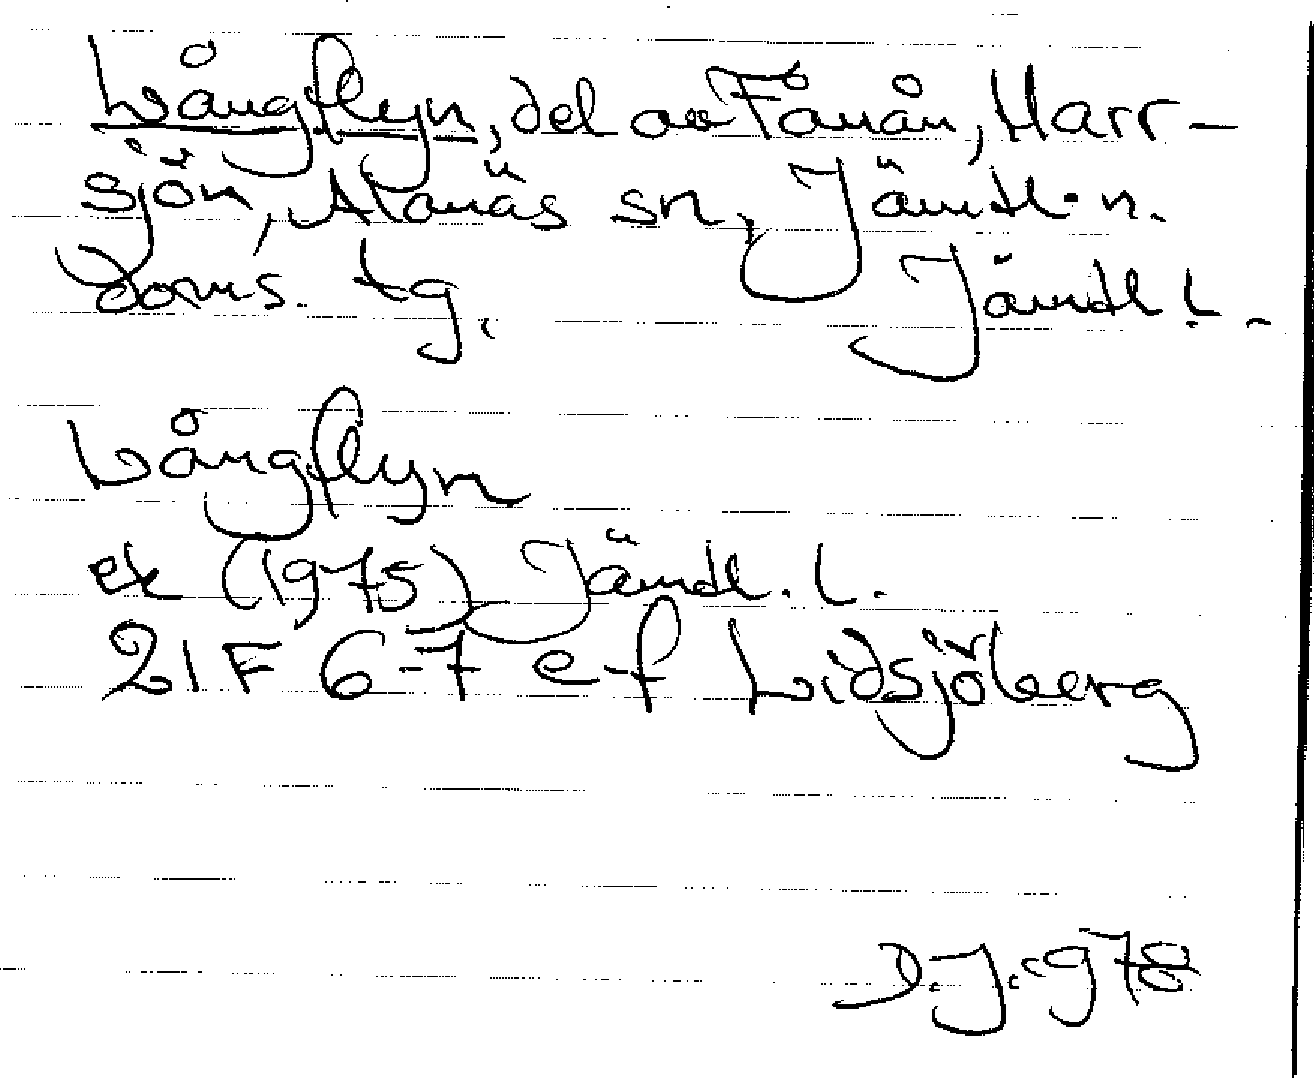 Långflyn, del av Fånån, Harr-
sjön, Alanäs sn, Jämtl. n.
doms. tg. Jämtl l.
Långflyn
ek (1975) Jämtl. l.
21F 6-7 e-f Lidsjöberg
D.J. 978